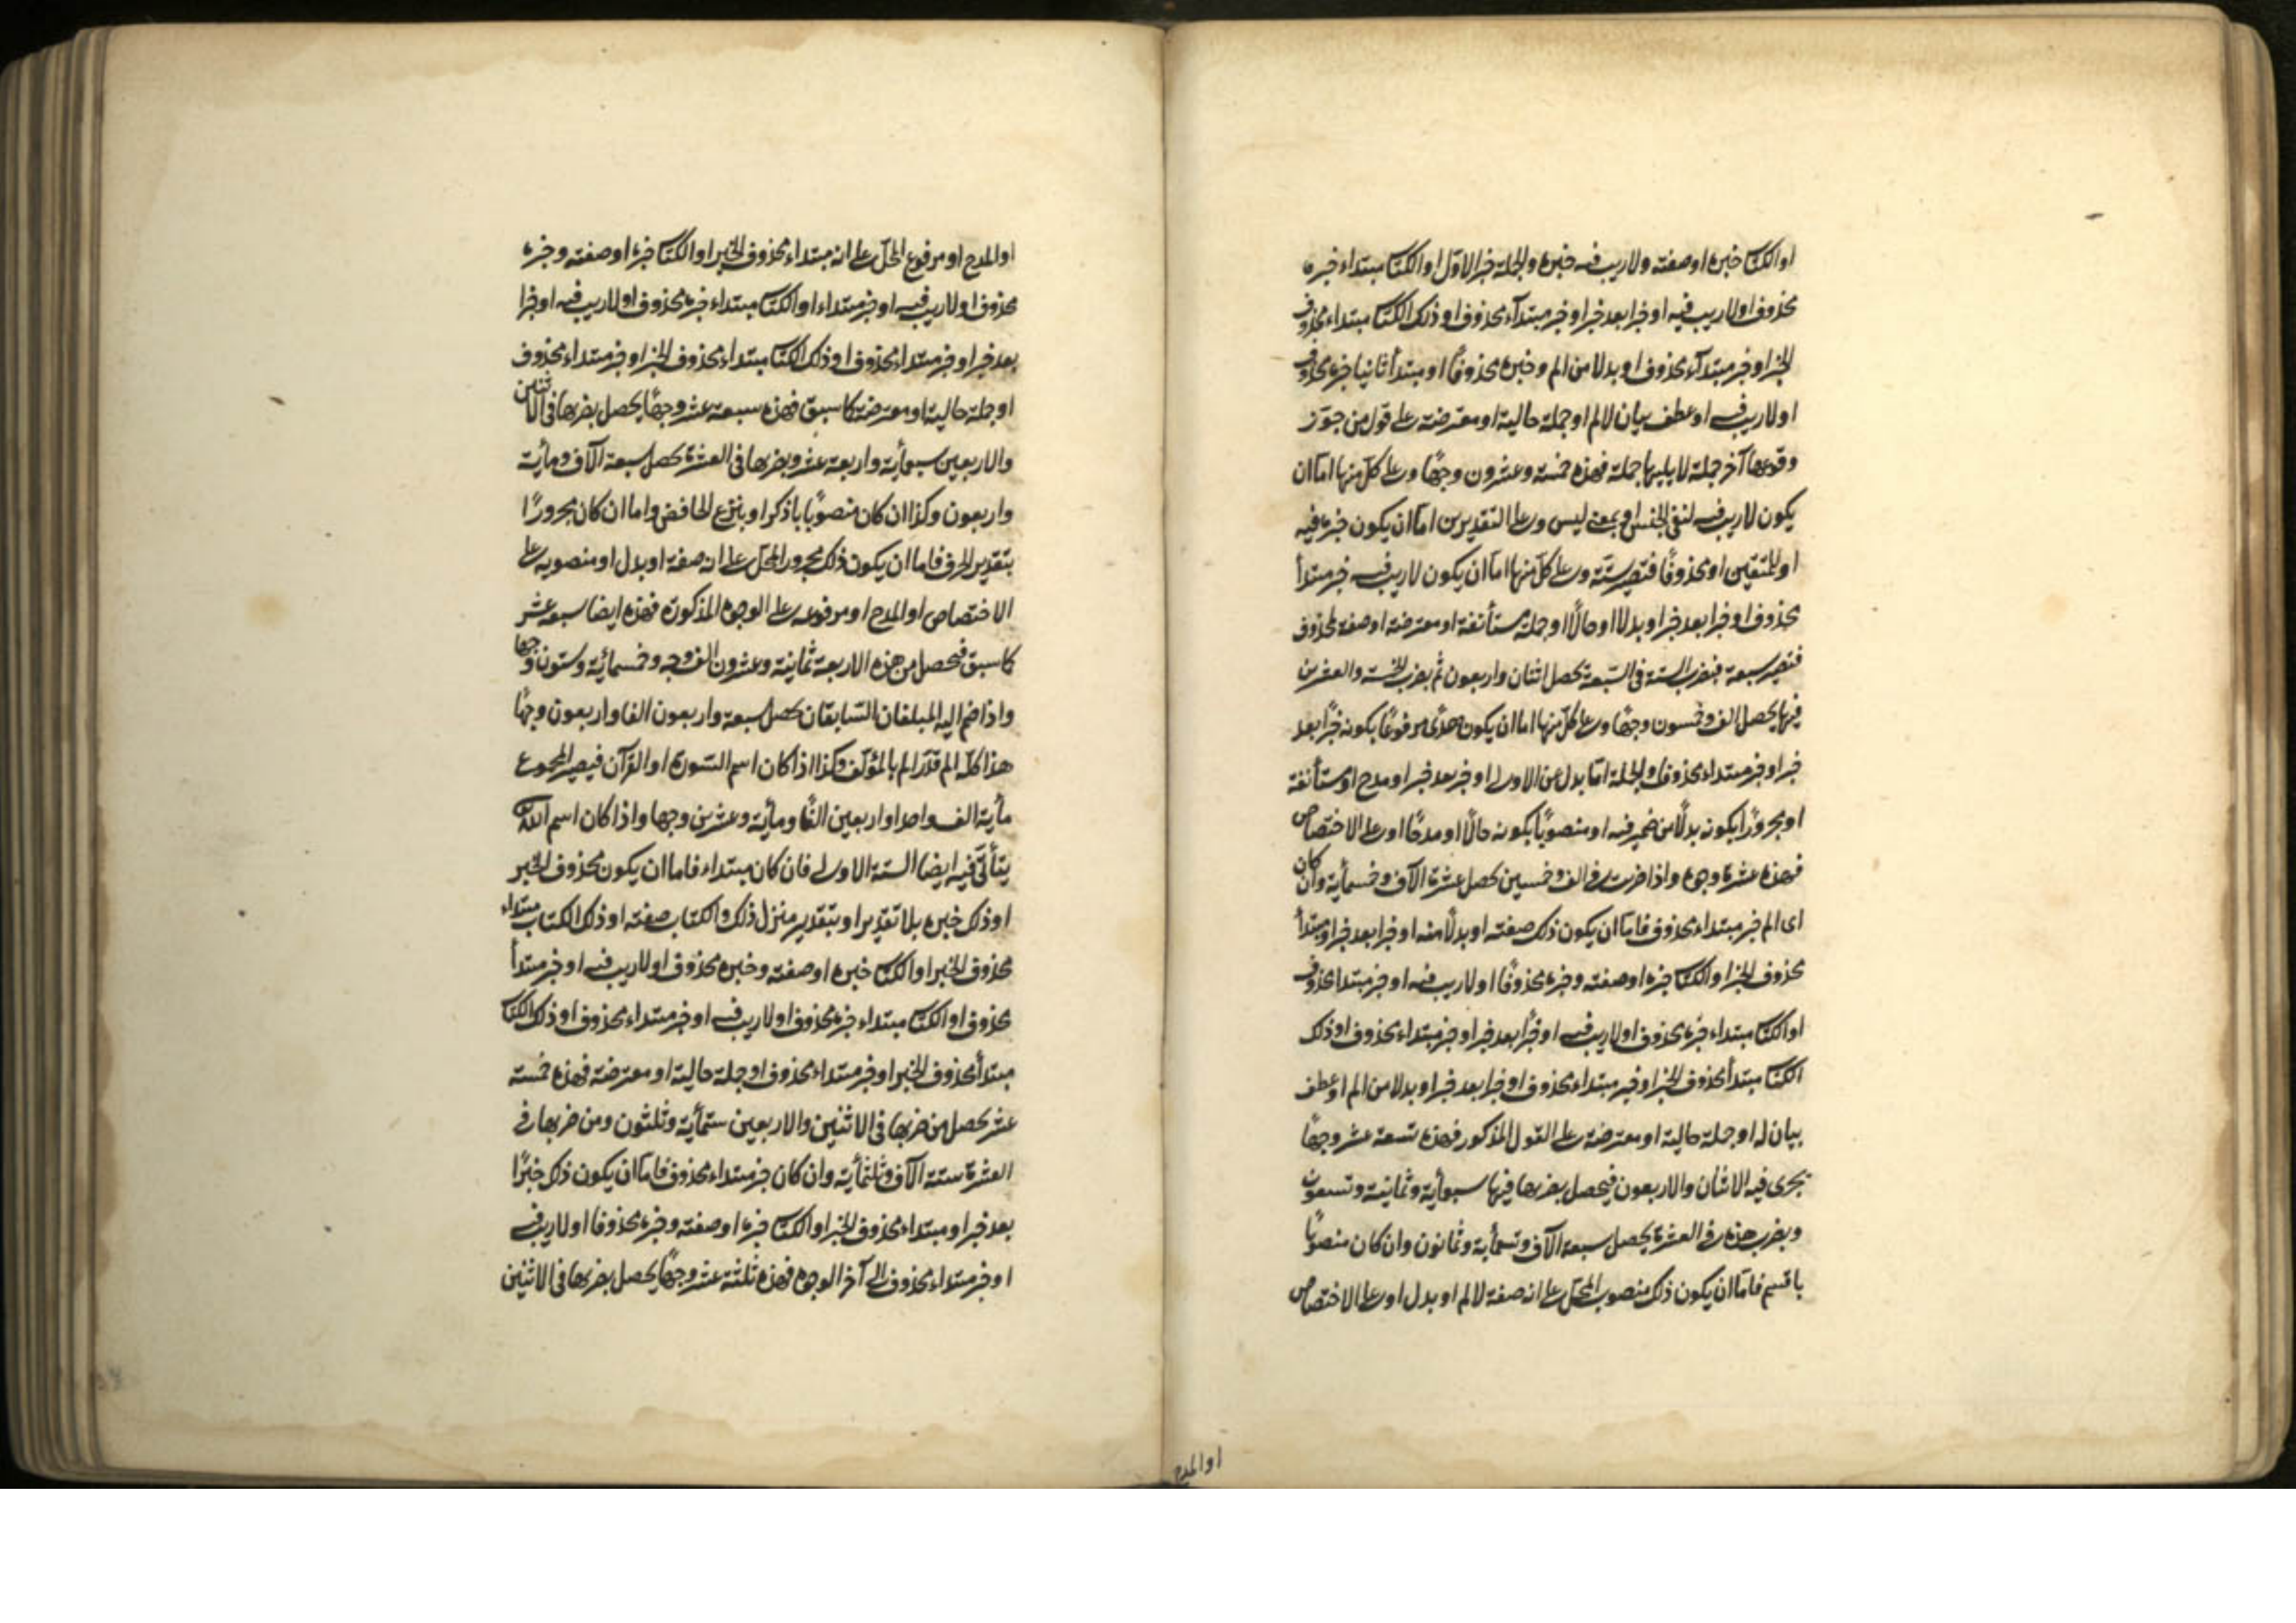 او الكتاب خبره او صفته ولا ريب فيه خبره والجملة خبر الاول او الكتاب مبتداء خبره
محذوف او لا ريب فيه او خبرا بعد خبر او خبر مبتداء محذوف او ذلك الكتاب مبتداء محذوف
الخبر او خبر مبتداء محذوف او بدلا من الم وخبره محذوفا او مبتدأ ثانيا خبره محذوف
او لا ريب فيه او عطف بيان لالم او جملة حالية او معترضة على قول من جوّز
وقوعها آخر جملة لا يليها جملة فهذه خمسة وعشرون وجهًا وعلى كل منها اما ان
يكون لا ريب فيه لنفى الجنس او بمعنى ليس وعلى التقديرين اما ان يكون خبره فيه
او للمتقين او محذوفًا فتصير ستة وعلى كل منها اما ان يكون لا ريب فيه خبر مبتدأ
محذوف او خبرا بعد خبر او بدلا او حالًا او جملة مستأنفة او معترضة او صفة لمحذوف
فتصير سبعة فبضرب الستة فى السبعة يحصل اثنان واربعون ثم بضرب الخمسة والعشرين
فيها يحصل الف وخمسون وجهًا وعلى كل منها اما ان يكون هدًى مرفوعًا بكونه خبرًا بعد
خبر او خبر مبتداء محذوف والجملة اما بدل من الاولى او خبر بعد خبر او مدح او مستأنفة
او مجرورًا بكونه بدلًا من ضمير فيه او منصوبًا بكونه حالًا او مدحًا او على الاختصاص
فهذه عشرة وجوه واذا ضربت فى الف وخمسين يحصل عشرة الآف وخمسمأية وان كان
اى الم خبر مبتداء محذوف فاما ان يكون ذلك صفته او بدلًا منه او خبرا بعد خبر او مبتدأ
محذوف الخبر او الكتاب خبره او صفته وخبره محذوفًا او لا ريب فيه او خبر مبتدا محذوف
او الكتاب مبتداء خبره محذوف او لا ريب فيه او خبرًا بعد خبر او خبر مبتداء محذوف او ذلك
الكتاب مبتدأ محذوف الخبر او خبر مبتداء محذوف او خبرا بعد خبر او بدلا من الم او عطف
بيان له او جملة حالية او معترضة على القول المذكور فهذه تسعة عشر وجهًا
يجرى فيه الاثنان والاربعون فيحصل بضربها فيها سبعمأية وثمانية وتسعون
وبضرب هذه فى العشرة يحصل سبعة الآف وتسعمأية وثمانون وان كان منصوبًا
باقسم فاما ان يكون ذلك منصوب المحل على انه صفة لالم او بدل او على الاختصاص
او المدح
او المدح او مرفوع المحل على انه مبتداء محذوف الخبر او الكتاب خبره او صفته وخبره
محذوف او لا ريب فيه او خبر مبتداء او الكتاب مبتداء خبره محذوف او لا ريب فيه او خبرا
بعد خبر او خبر مبتداء محذوف او ذلك الكتاب مبتداء محذوف الخبر او خبر مبتداء محذوف
او جملة حالية او معترضة كما سبق فهذه سبعة عشر وجهًا يحصل بضربها فى الاثنين
والاربعين سبعمأية واربعة عشر وبضربها فى العشرة يحصل سبعة الآف ومأية
واربعون وكذا ان كان منصوبًا باذكر او بنزع الخافض واما ان كان مجرورًا
بتقدير الحرف فاما ان يكون ذلك مجرور المحل على انه صفة او بدل او منصوبه على
الاختصاص او المدح او مرفوعه على الوجوه المذكورة فهذه ايضا سبعة عشر
كما سبق فيحصل من هذه الاربعة ثمانية وعشرون الف وجه وخمسمائة وستون وجها
واذا ضم اليه المبلغان السّابقان يحصل سبعة واربعون الفا واربعون وجهًا
هذا كله الم قدّر الم بالمؤلف وكذا اذا كان اسم السّورة او القرآن فيصير المجموع
مأية الف واحدا واربعين الفًا ومأية وعشرين وجها واذا كان اسم اللّه
يتأتّى فيه ايضا الستة الاولى فان كان مبتداء فاما ان يكون محذوف الخبر
او ذلك خبره بلا تقدير او بتقدير منزل ذلك والكتاب صفته او ذلك الكتاب مبتداء
محذوف الخبر او الكتاب خبره او صفته وخبره محذوف او لا ريب فيه او خبر مبتدأ
محذوف او الكتاب مبتداء خبره محذوف او لا ريب فيه او خبر مبتداء محذوف او ذلك الكتاب
مبتدأ محذوف الخبر او خبر مبتداء محذوف او جملة حالية او معترضة فهذه خمسة
عشر يحصل من ضربها فى الاثنين والاربعين ستمأية وثلثون ومن ضربها فى
العشرة ستة الآف وثلثمأية وان كان خبر مبتداء محذوف فاما ان يكون ذلك خبرًا
بعد خبر او مبتداء محذوف الخبر او الكتاب خبره او صفته وخبره محذوفا او لا ريب فيه
او خبر مبتداء محذوف الى آخر الوجوه فهذه ثلثة عشر وجهًا يحصل بضربها فى الاثنين